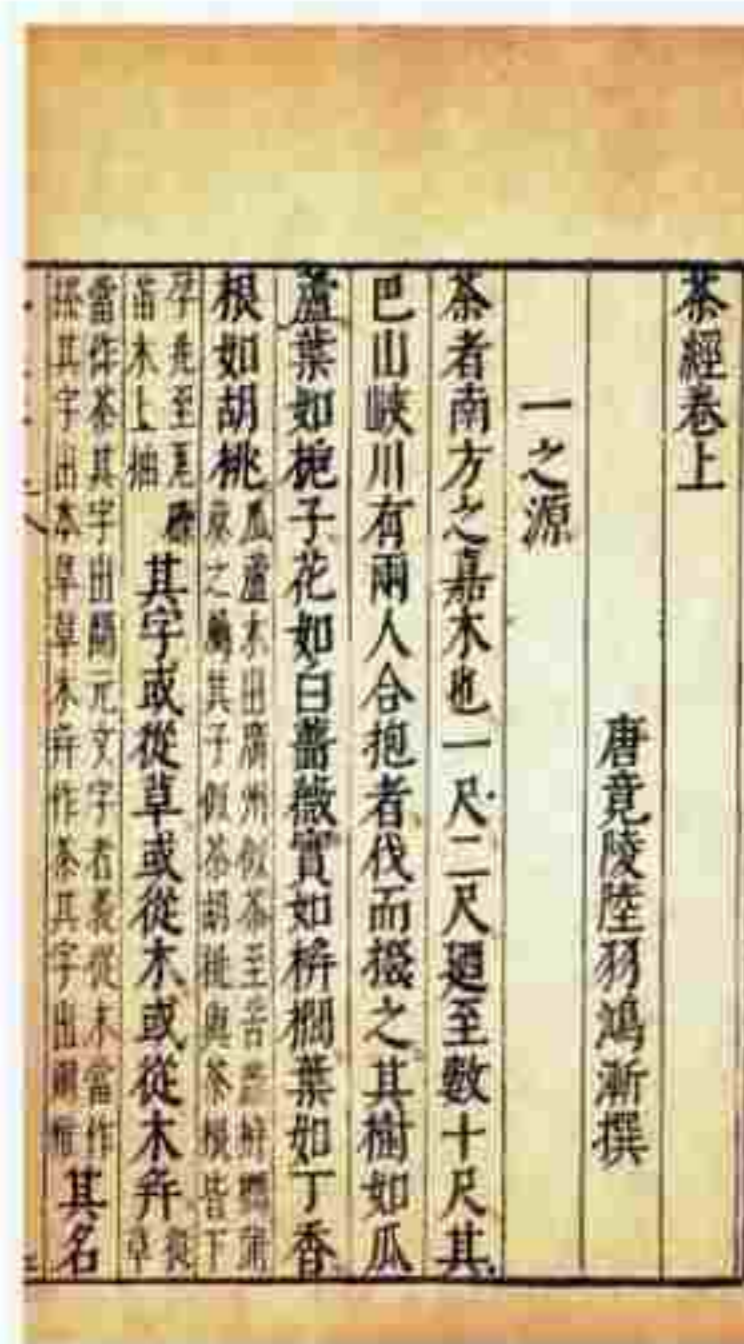 茶經卷上
唐竟陵陸羽鴻漸撰
一之源
茶者南方之嘉木也一尺二尺廼至數十尺其
巴山峽川有兩人合抱者伐而掇之其樹如瓜
蘆葉如梔子花如白薔薇實如栟櫚葉如丁香
根如胡桃瓜蘆木出廣州似茶至苦澀栟櫚蒲葵之屬其子似茶胡桃與茶根皆下
孕兆至瓦礫苗木上抽其字或從草或從木或從木并從草
當作茶其字出開元文字者義從木當作其字出本草草木并作茶其字出爾雅其名